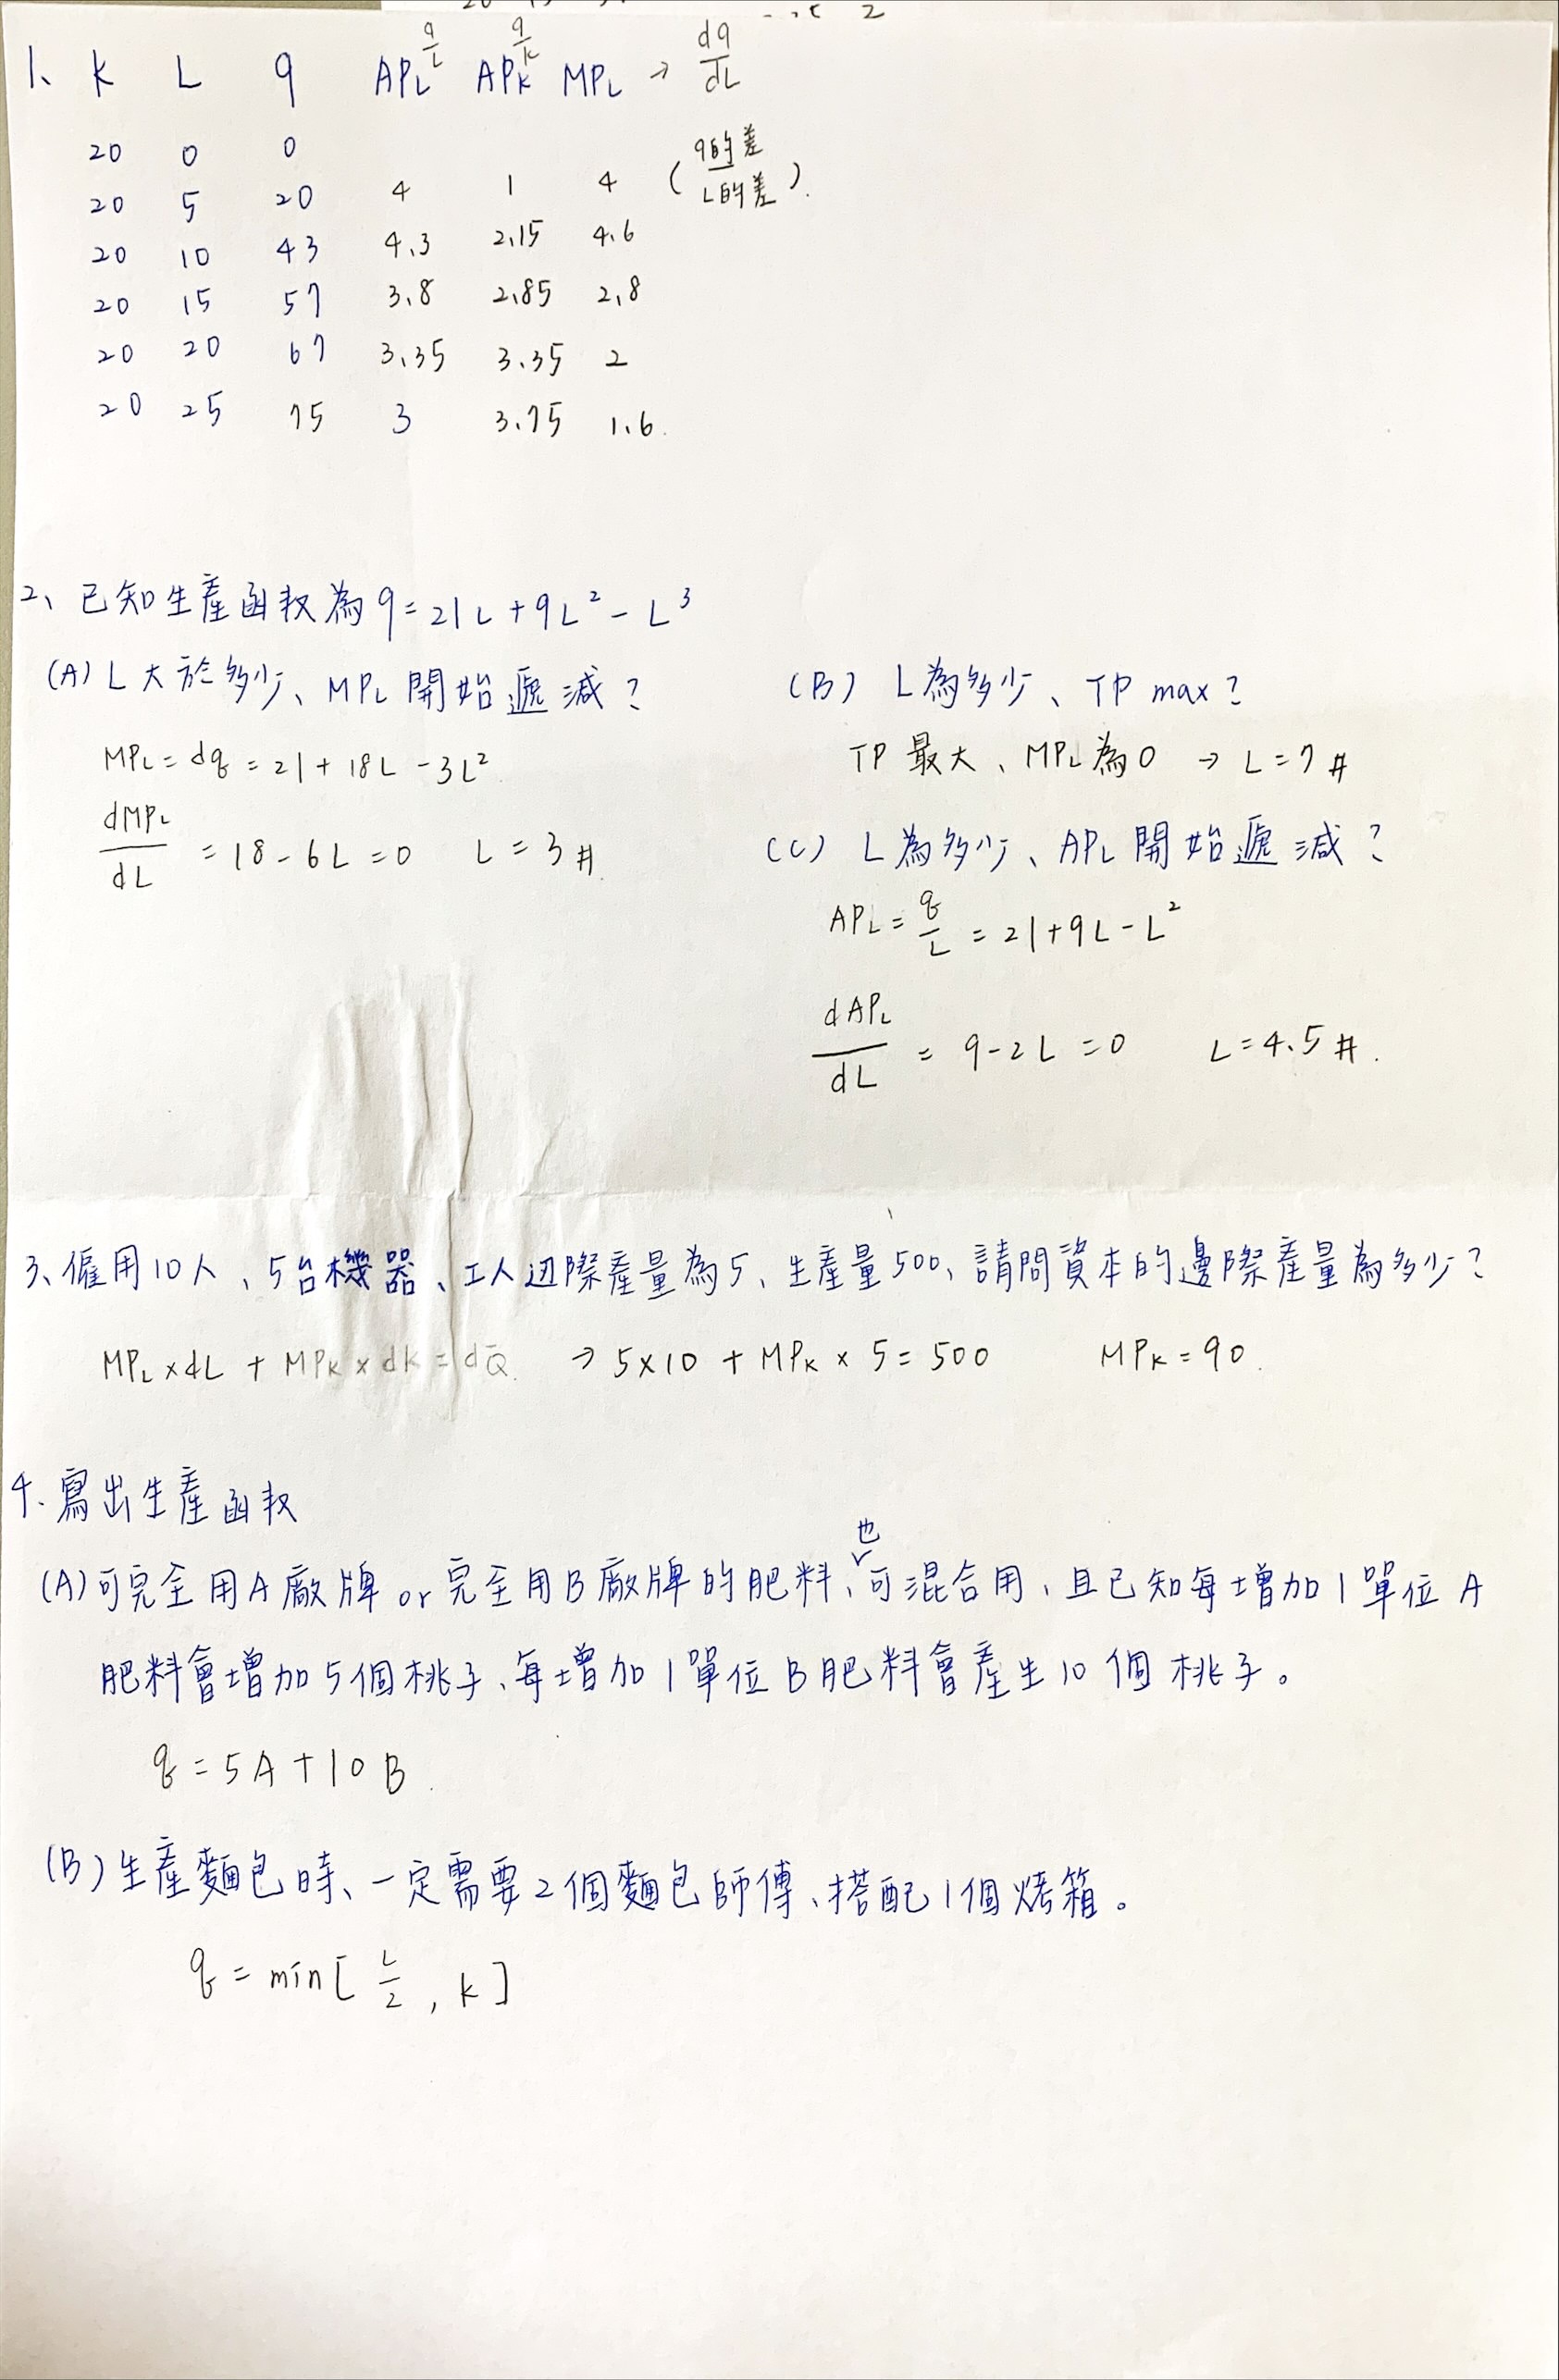 1、 K L q APL q/L APK q/K MPL → dq/dL
20 0 0 (q的差/L的差).
20 5 20 4 1 4
20 10 43 4.3 2.15 4.6
20 15 57 3.8 2.85 2.8
20 20 67 3.35 3.35 2
20 25 75 3 3.75 1.6.
2、已知生產函数為 q=21L+9L²-L³
(A) L大於多少、MPL開始遞減?
MPL = dq = 21+18L-3L²
dMPL/dL = 18-6L=0 L=3#
(B) L為多少、TP max?
TP 最大、MPL為0 → L=7#
(C) L為多少、APL開始遞減?
APL = q/L = 21+9L-L²
dAPL/dL = 9-2L=0 L=4.5#.
3、僱用10人、5台機器、工人边際產量為5、生產量500、請問資本的邊際產量為多少?
MPL×dL + MPK×dK = dQ. → 5×10 + MPK×5=500 MPK=90.
4.寫出生產函数
(A)可完全用A廠牌 or 完全用B廠牌的肥料、也可混合用、且已知每增加1單位A
肥料會增加5個桃子、每增加1單位B肥料會產生10個桃子。
q=5A+10B.
(B)生產麵包時、一定需要2個麵包師傅、搭配1個烤箱。
q = min[ L/2 , K ]